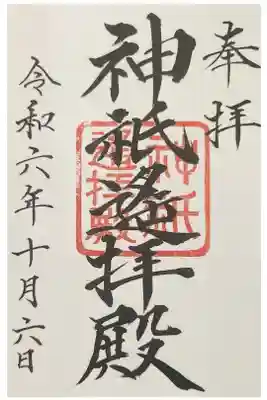 奉拝
神祇遙拝殿
神祇
遥拝殿
令和六年十月六日